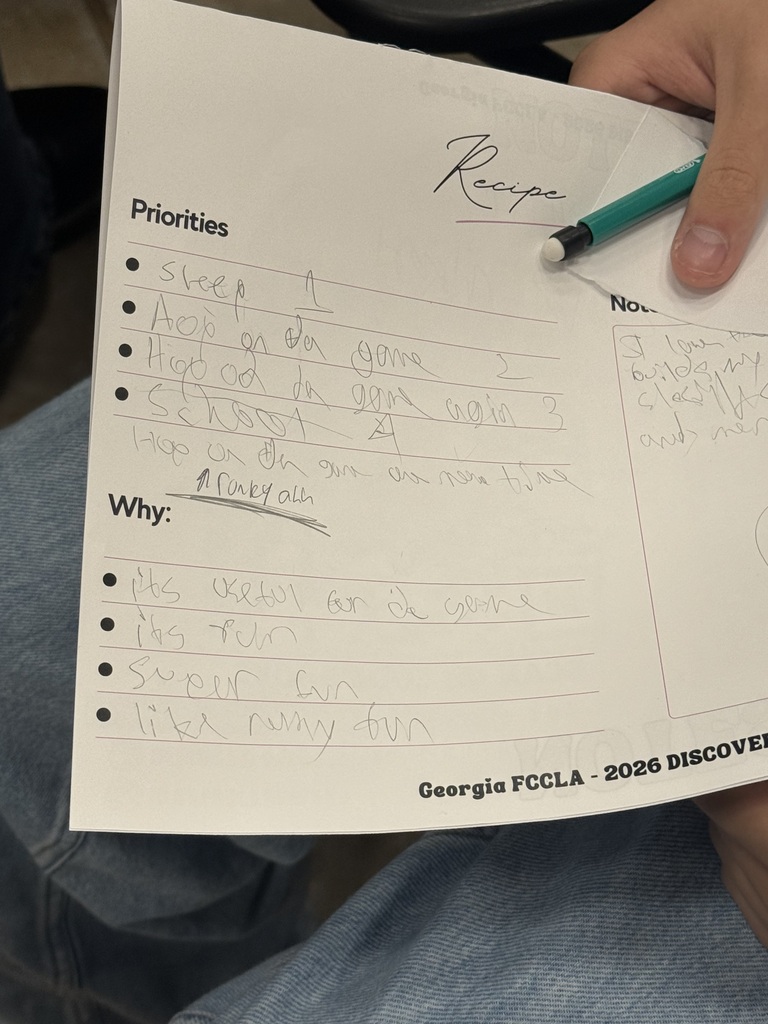 Recipe
Priorities
sleep 1
Hop on da game 2
Hop on da game again 3
School 4
Hop on da gam one more time
Why:
its useful for da game
its fun
super fun
like really fun
Not
builds my
and
Georgia FCCLA - 2026 DISCOVER